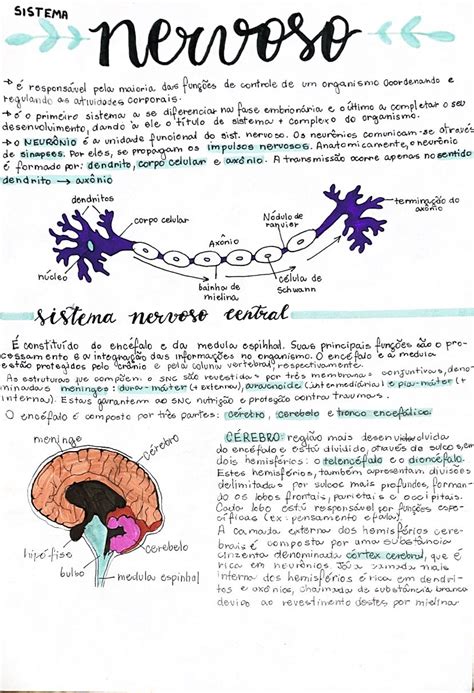 SISTEMA
nervoso
→ é responsável pela maioria das funções de controle de um organismo coordenando e
regulando as atividades corporais.
→ é o primeiro sistema a se diferenciar na fase embrionária e o último a completar o seu
desenvolvimento, dando a ele o título de sistema + complexo do organismo.
→ O NEURÔNIO é a unidade funcional do sist. nervoso. Os neurônios comunicam-se através
de sinapses. Por eles, se propagam os impulsos nervosos. Anatomicamente, o neurônio
é formado por: dendrito, corpo celular e axônio. A transmissão ocorre apenas no sentido
dendrito → axônio
dendritos
corpo celular
Nódulo de
ranvier
terminação do
axônio
Axônio
núcleo
bainha de
mielina
célula de
Schwann
sistema nervoso central
É constituído do encéfalo e da medula espinhal. Suas principais funções são o pro-
cessamento e a integração das informações no organismo. O encéfalo e a medula
estão protegidos pelo crânio e pela coluna vertebral, respectivamente.
As estruturas que compõem o SNC são revestidas por três membranas conjuntivas, deno-
minadas meninges: dura-máter (+ externa), aracnoide (intermediária) e pia-máter (+
interna). Estas garantem ao SNC nutrição e proteção contra traumas.
O encéfalo é composto por três partes: cérebro, cerebelo e tronco encefálico.
meninge
cérebro
hipófise
bulbo
cerebelo
medula espinhal
CÉREBRO: região mais desenvolvida
do encéfalo e está dividido, através de sulcos, em
dois hemisférios: o telencéfalo e o diencéfalo.
Estes hemisférios, também apresentam divisões
delimitadas por sulcos mais profundos, forman-
do os lobos frontais, parietais e occipitais.
Cada lobo está responsável por funções espe-
cíficas (ex: pensamento e fala).
A camada externa dos hemisférios cere-
brais é composta por uma substância
cinzenta denominada córtex cerebral, que é
rica em neurônios. Já a camada mais
interna dos hemisférios é rica em dendri-
tos e axônios, chamada de substância branca
devido ao revestimento destes por mielina